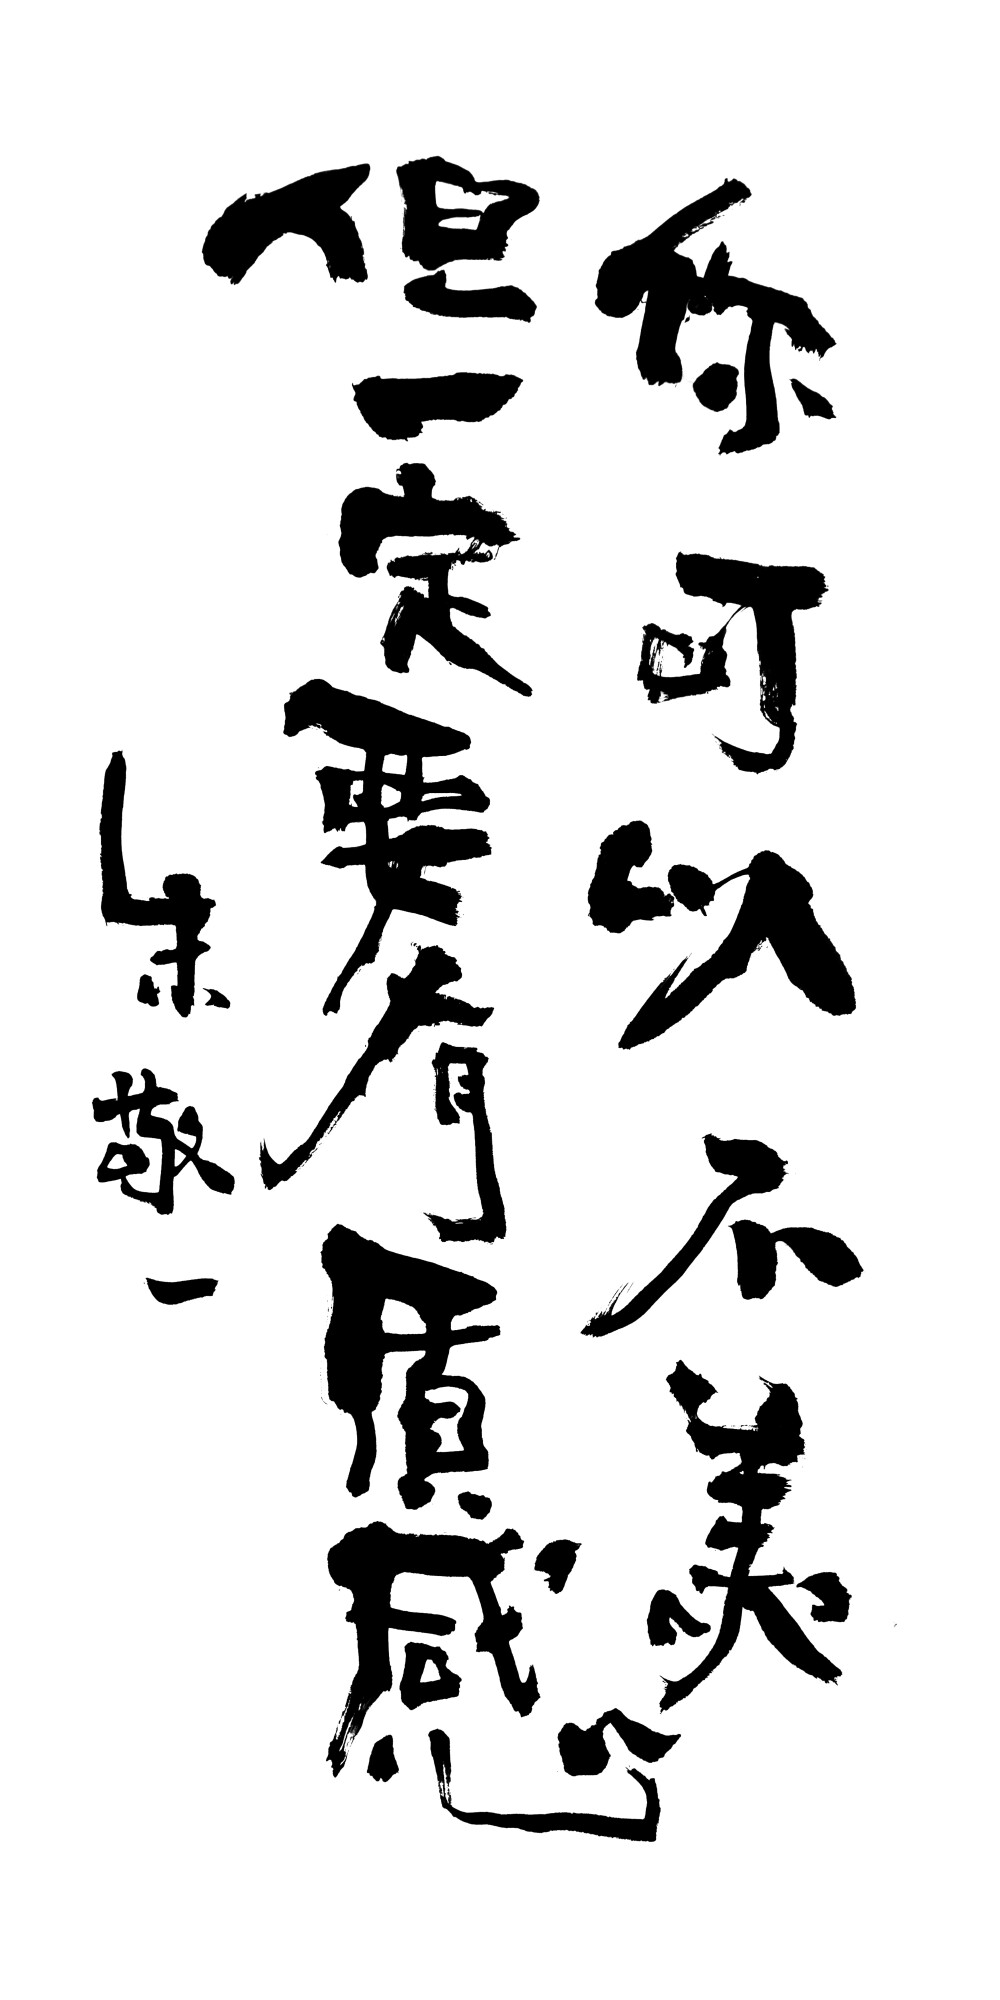 你可以不美
但一定要有质感
朱敬一